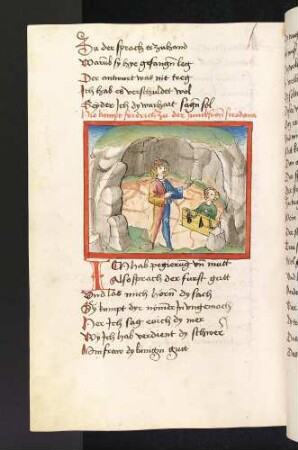 Da der sprach ze zuhand
Warub sy hye gefangn leg
Der antwort was nit treg
Ich hab es verschuldet wol
Seyder Ich dy warhait sagn sol
Hie kumpt fridrich zu der junckfrau
Ich hab pegirug vn mutt
Also sprach der furst gutt
Vnd las mich horn dy sach
Sy kumpt dye
Her Ich sag euch dy mer
Wy Ich hab verdient dy schwer
Ain frawe dy kungin gutt